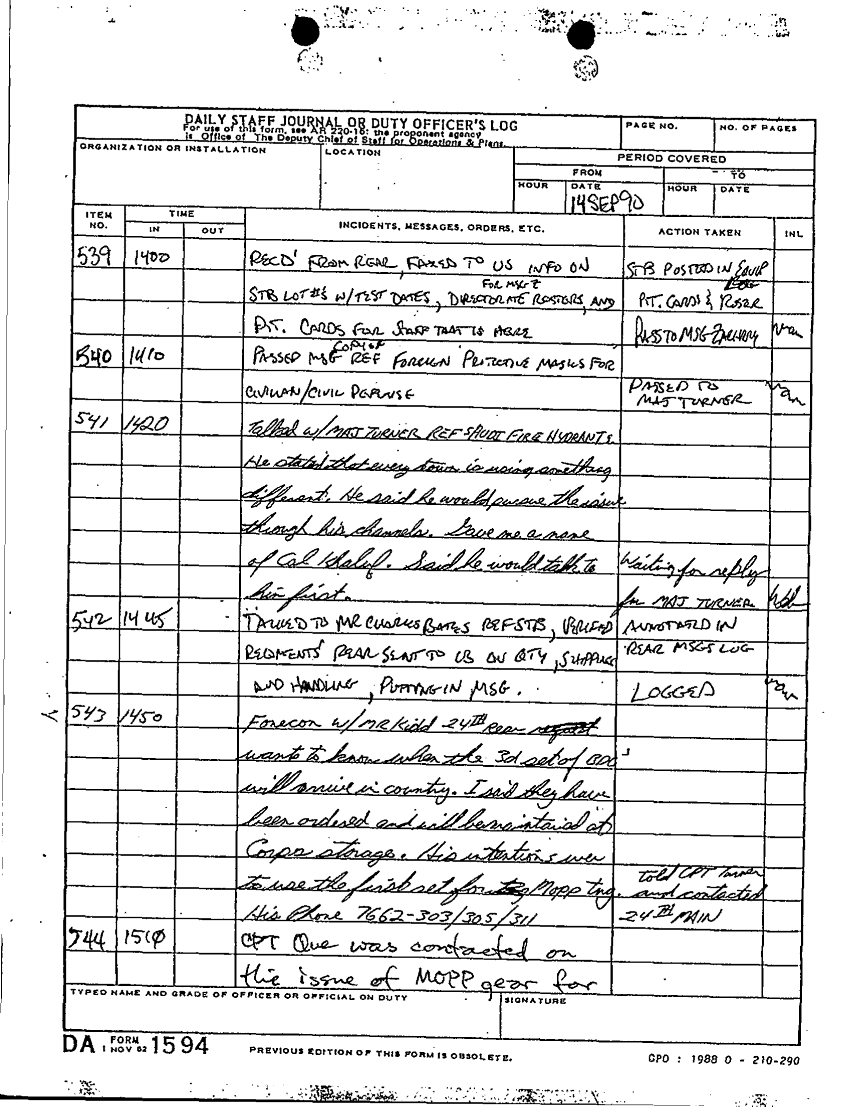 DAILY STAFF JOURNAL OR DUTY OFFICER'S LOG
For use of this form, see AR 220-15; the proponent agency
is Office of The Deputy Chief of Staff for Operations & Plans.
PAGE NO.
NO. OF PAGES
ORGANIZATION OR INSTALLATION
LOCATION
PERIOD COVERED
FROM
TO
HOUR
DATE
14SEP90
HOUR
DATE
ITEM NO.
TIME
IN
OUT
INCIDENTS, MESSAGES, ORDERS, ETC.
ACTION TAKEN
INL
539 1400 REC'D FROM REAR, FAXED TO US INFO ON
STB POSTED IN EQUIP
FOR MSG &
STB LOT #'S W/TEST DATES, DIRECTORATE ROSTERS, AND
P.T. CARDS & ROSTER
P.T. CARDS FOR STAFF THAT IS HERE
PASS TO MSG
540 1410 PASSED MSG REF FOREIGN PROTECTIVE MASKS FOR
COPY OF
CIVILIAN/CIVIL DEFENSE
PASSED TO
MAJ TURNER
541 1420 Talked w/ MAJ TURNER REF SAUDI FIRE HYDRANTS.
He stated that every town is using something
different. He said he would pursue the issue
through his channels. Gave me a name
of Col Khaluf. Said he would talk to
him first.
Waiting for reply
for MAJ TURNER
542 1445 TALKED TO MR CHARLES BATES REF STB, VERIFIED
ANNOTATED IN
REAR SENT TO US ON QTY, SHIPPING
REAR MSGS LOG
AND HANDLING, PUTTING IN MSG.
LOGGED
543 1450 Fonecon w/ MR Kidd 24TH Rear
wants to know when the 3d set of
will arrive in country. I said they have
been ordered and will be maintained at
Corps storage. His intentions were
to use the first set for Mopp tng.
His Phone 7662-303/305/311
told CPT Turner
and contacted
24TH MAIN
544 1510 CPT Que was contacted on
the issue of MOPP gear for
TYPED NAME AND GRADE OF OFFICER OR OFFICIAL ON DUTY
SIGNATURE
DA FORM 1 NOV 62 1594
PREVIOUS EDITION OF THIS FORM IS OBSOLETE.
GPO : 1988 O - 210-290